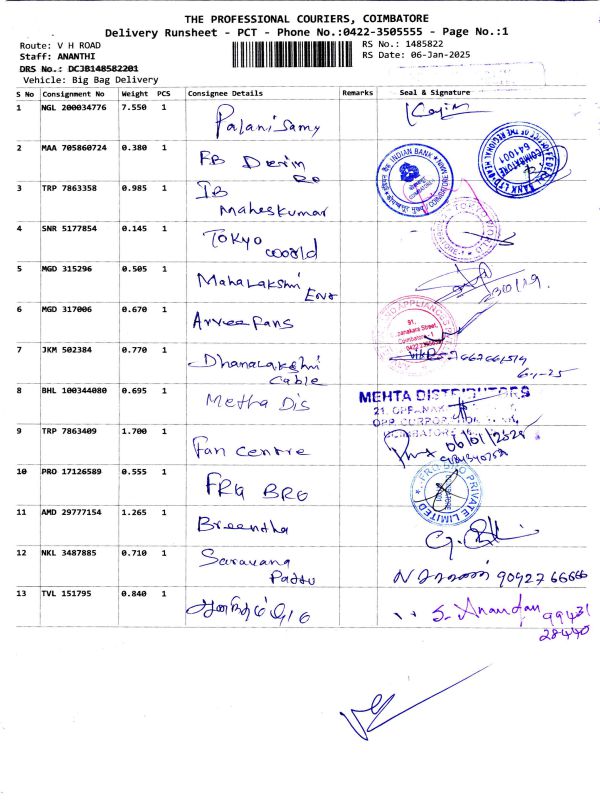 THE PROFESSIONAL COURIERS, COIMBATORE
Delivery Runsheet - PCT - Phone No.:0422-3505555 - Page No.:1
Route: V H ROAD
RS No.: 1485822
Staff: ANANTHI
RS Date: 06-Jan-2025
DRS No.: DCJB148582201
Vehicle: Big Bag Delivery
S No Consignment No Weight PCS Consignee Details Remarks Seal & Signature
1 NGL 200034776 7.550 1 Palanisamy
2 MAA 705860724 0.380 1 FB
INDIAN BANK
641001
3 TRP 7863358 0.985 1 IB
Maheskumar
4 SNR 5177854 0.145 1 Tokyo
world
5 MGD 315296 0.505 1 Mahalakshmi
6 MGD 317006 0.670 1 Arvee fans
7 JKM 502384 0.770 1 Dhanalakshmi
Cable
8 BHL 100344080 0.695 1 Metha Dis
MEHTA DISTRIBUTORS
9 TRP 7863409 1.700 1 Fan centre
06/01/2025
10 PRO 17126589 0.555 1 FRG BRG
PRIVATE LIMITED
11 AMD 29777154 1.265 1 Breentha
12 NKL 3487885 0.710 1 Saravana
90927 66666
13 TVL 151795 0.840 1
S. Anandan 99431
28440